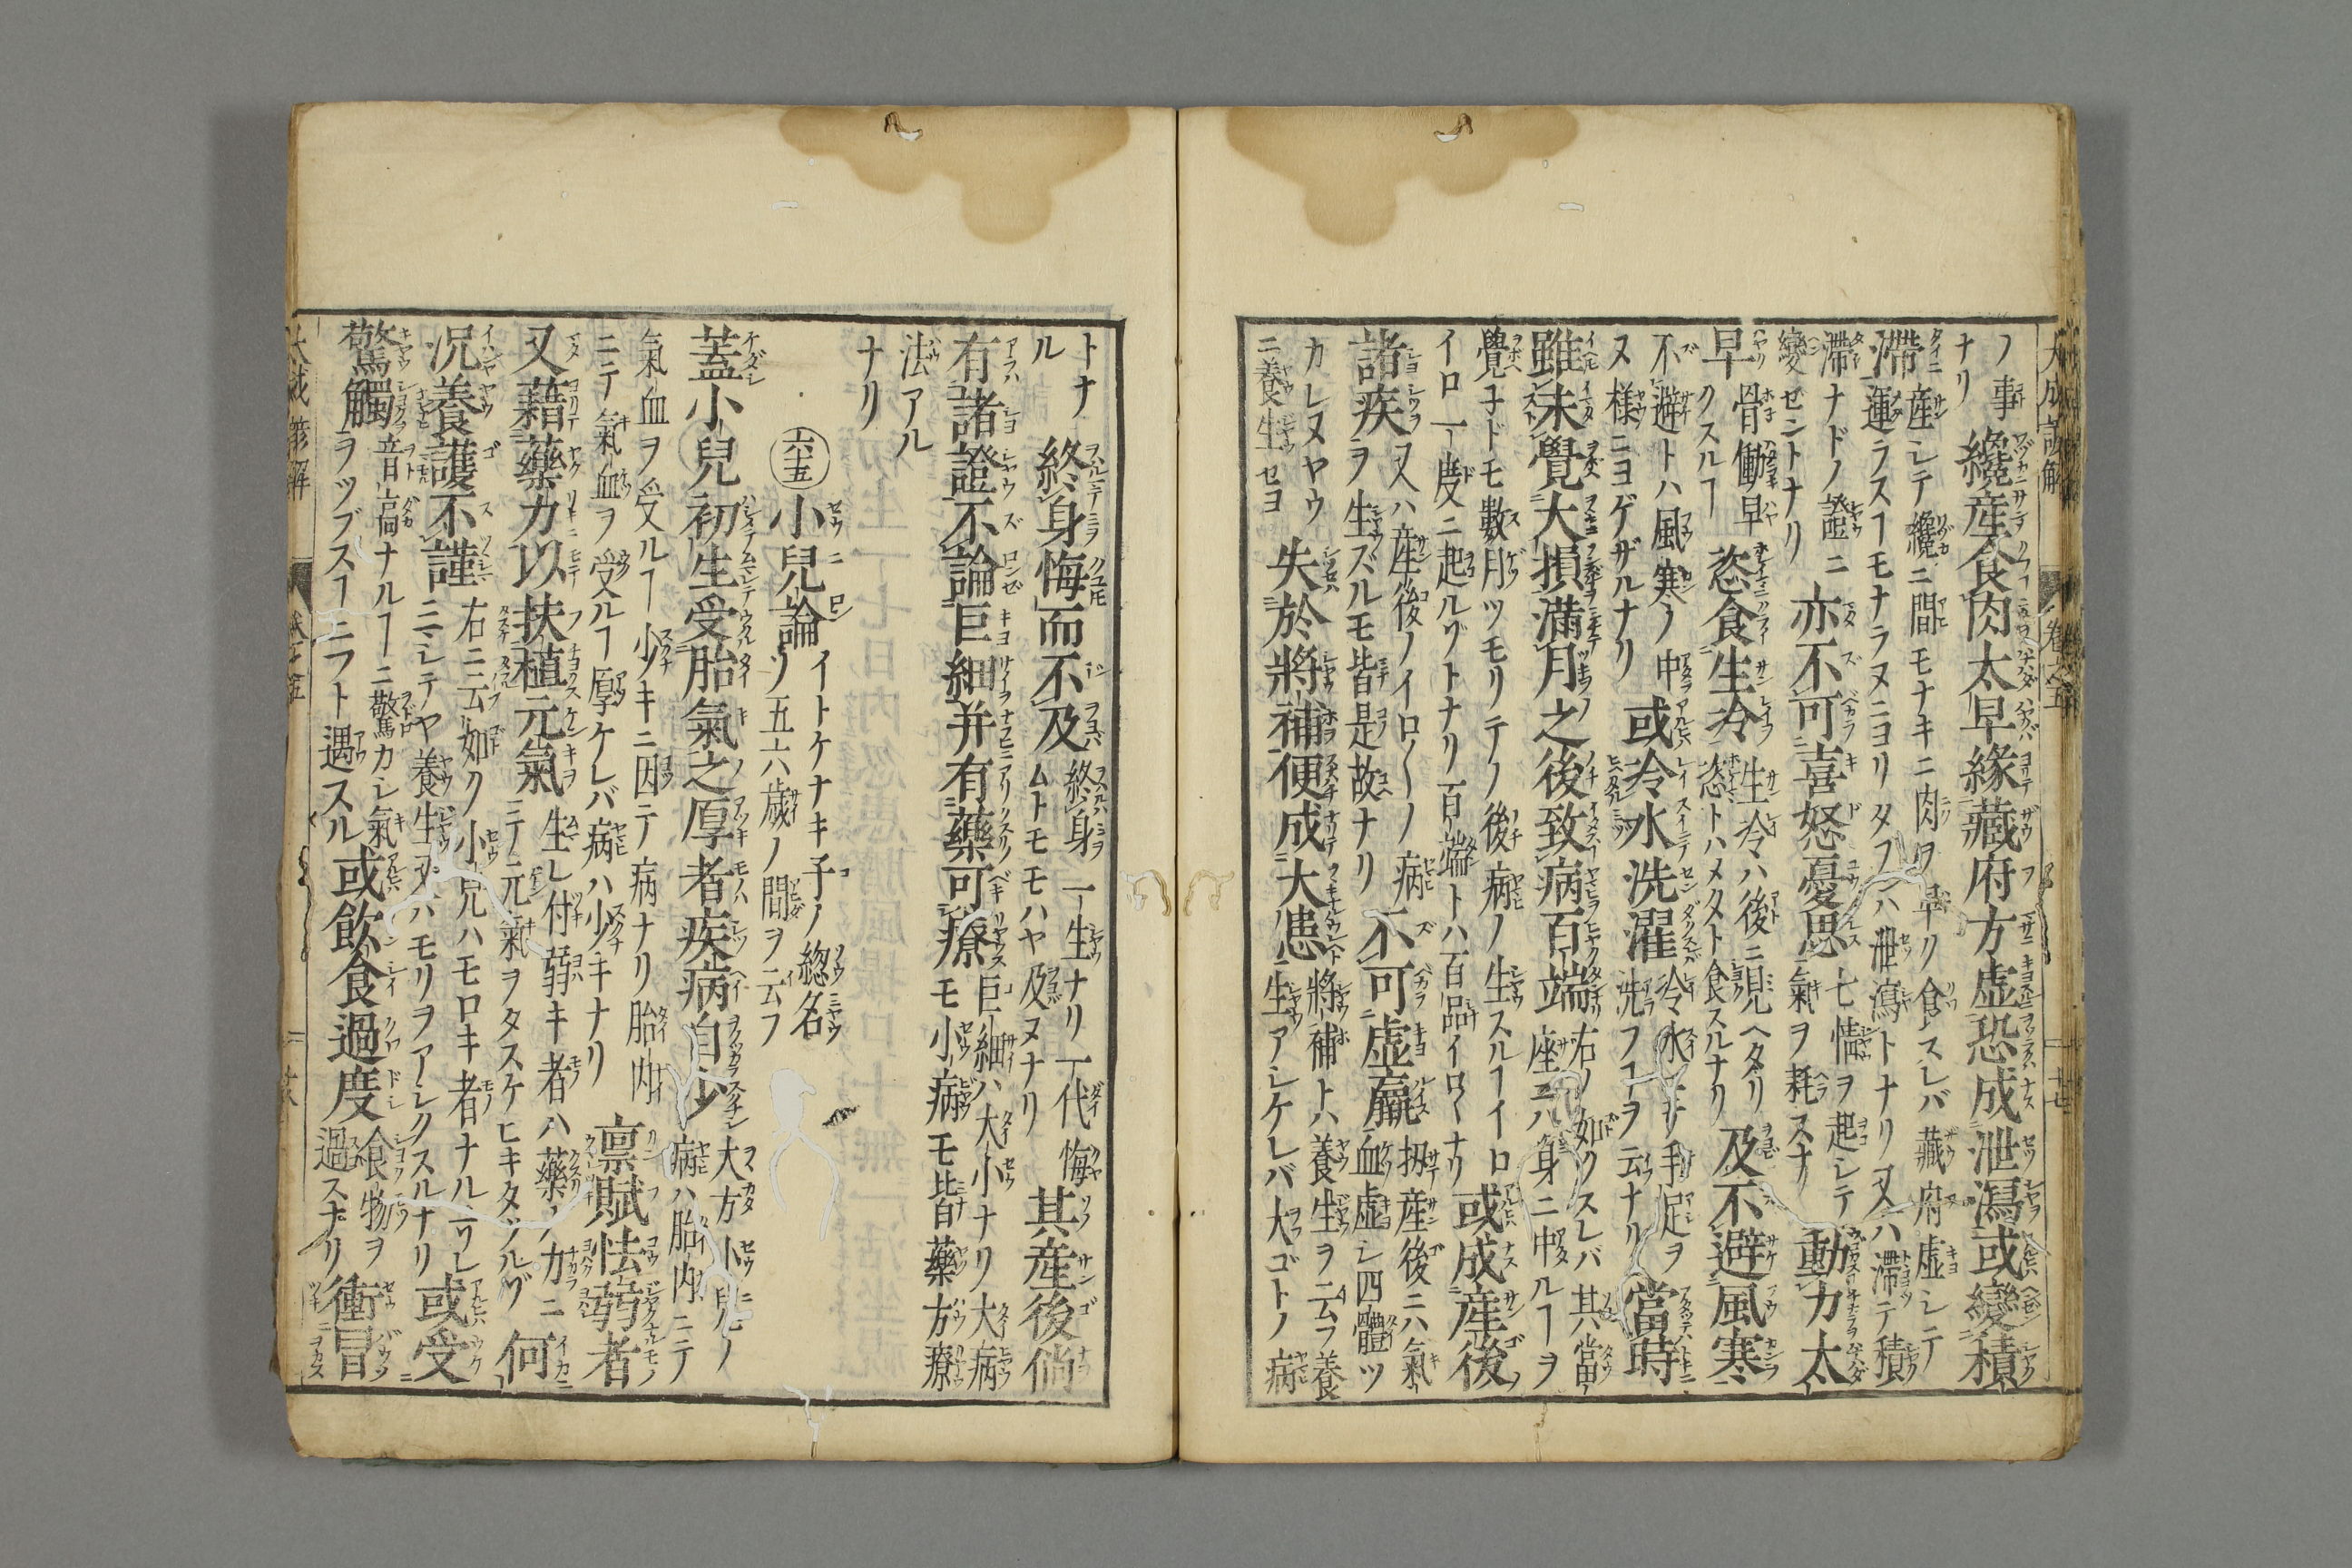 大成論諺解 卷之五 十七
ノ事
ナリ
纔産食肉太早縁藏府方虚恐成泄瀉或變積
滯
産シテ纔ニ間モナキニ肉ヲ早ク食スレバ藏府虚シテ
運ラスヿモナラヌニヨリタフハ泄瀉トナリ又ハ滯テ積
滯ナドノ證ニ
變ゼントナリ
亦不可喜怒憂思
七情ヲ起シテ
氣ヲ耗スナリ
動力太
早
骨働早
クスルヿ
恣食生冷
生冷ハ後ニ見ヘタリ
恣トハメタト食スルナリ
及不避風寒
不避トハ風寒ノ中ラ
ヌ様ニヨゲザルナリ
或冷水洗濯
冷水ニテ手足ヲ
洗フコヲ云ナリ
當時
雖未覺大損滿月之後致病百端
右ノ如クスレバ其當
座ニハ身ニ中ルヿヲ
覺子ドモ數月ツモリテノ後病ノ生スルヿイロ
イロ一度ニ起ルゾトナリ百端トハ百品イロ〳〵ナリ
或成産後
諸疾
又ハ産後ノイロ〳〵ノ病
ヲ生スルモ皆是故ナリ
不可虚羸
扨産後ニハ氣
血虚シ四體ツ
カレヌヤウ
ニ養生セヨ
失於將補便成大患
將補トハ養生ヲ云フ養
生アシケレバ大ゴトノ病
トナ
ル
終身悔而不及
終身一生ナリ一代悔
ムトモモハヤ及ヌナリ
其産後倘
有諸證不論巨細并有藥可療
巨細ハ大小ナリ大病
モ小病モ皆藥方療
法アル
ナリ
六十五
小兒論
イトケナキ子ノ惣名
ソ五六歳ノ間ヲ云フ
蓋小兒初生受胎氣之厚者疾病自少
大方小兒ノ
病ハ胎内ニテ
氣血ヲ受ルヿ少キニ因テ病ナリ胎内
ニテ氣血ヲ受ルヿ厚ケレバ病ハ少キナリ
禀賦怯弱者
又藉藥力以扶植元氣
生レ付弱キ者ハ藥ノ力ニ
ニテ元氣ヲタスケヒキタツルゾ
何
况養護不謹
右ニ云如ク小兒ハモロキ者ナルヿシ
ニシテヤ養生又ハモリヲアシクスルナリ
或受
驚觸
音高ナルヿニ驚カレ氣
ラツブスヿニフト遇スル
或飲食過度
食物ヲ
過スナリ
衝冒